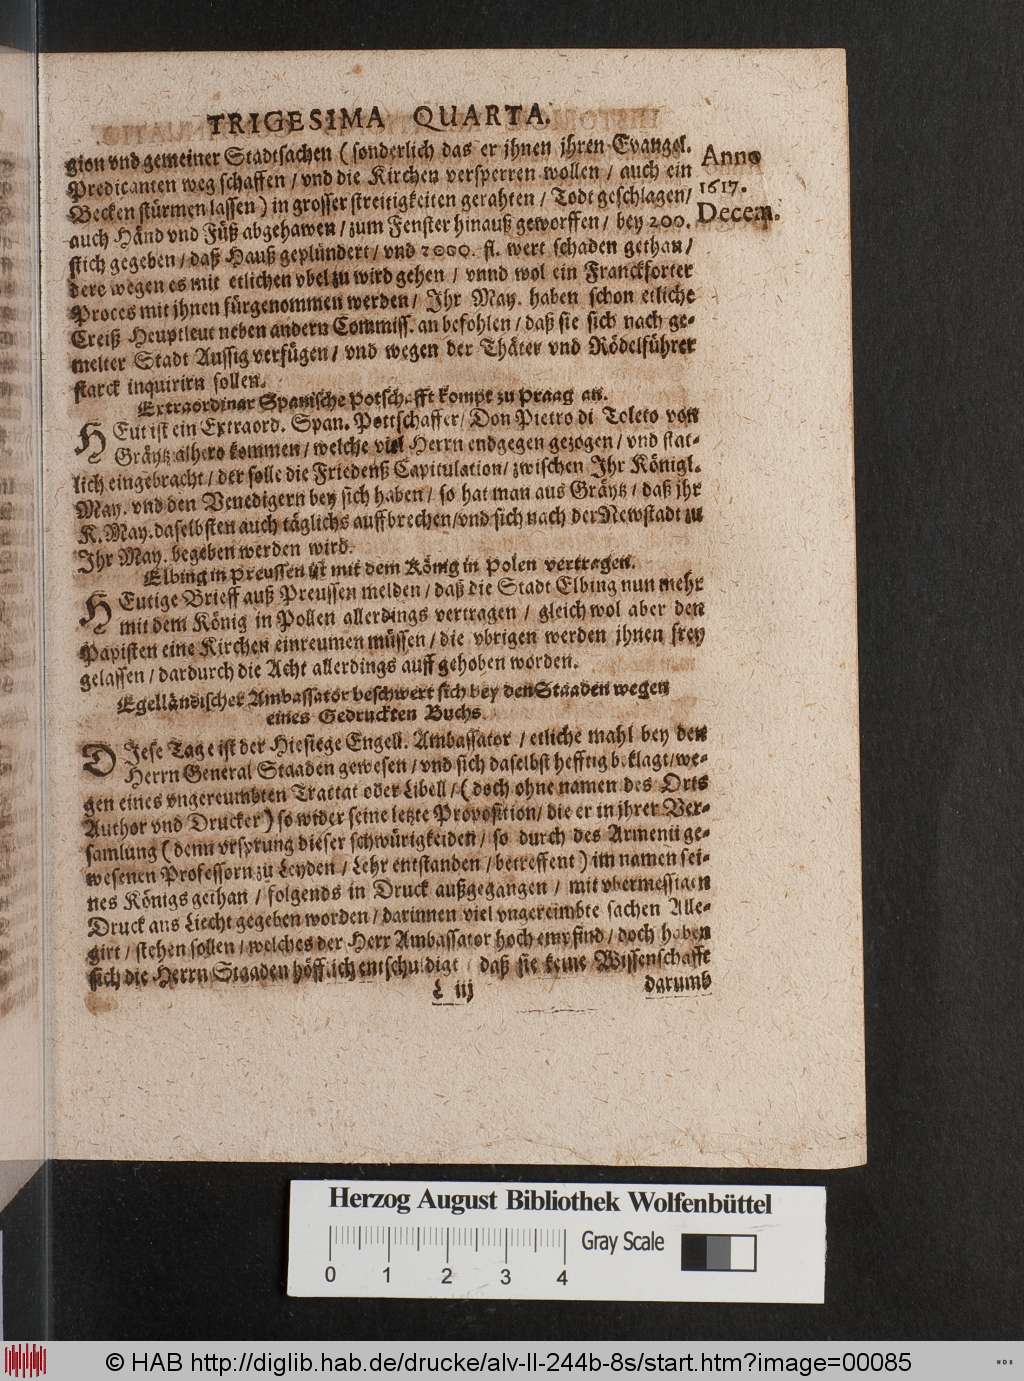 TRIGESIMA QUARTA.
gion vnd gemeiner Stadtsachen (sonderlich das er jhnen jhren Evangel.
Predicanten weg schaffen / vnd die Kirchen versperren wollen / auch ein
Becken stürmen lassen) in grosser streitigkeiten gerahten / Todt geschlagen/
auch Händ vnd Füß abgehawen / zum Fenster hinauß geworffen / bey 200.
stich gegeben / daß Hauß geplündert / vnd 2000. fl. wert schaden gethan /
dero wegen es mit etlichen vbel zu wird gehen / vnnd wol ein Franckforter
Proces mit jhnen fürgenommen werden / Ihr May. haben schon etliche
Creiß Heuptleut neben andern Commiss. an befohlen / daß sie sich nach ge-
melter Stadt Aussig verfügen / vnd wegen der Thäter vnd Rödelführer
starck inquirirn sollen.
Anno
1617.
Decem.
Extraordinar Spanische Potschafft kompt zu Praag an.
HEut ist ein Extraord. Span. Pottschaffer / Don Pietro di Toleto von
Gräytz alhero kommen / welche viel Herrn endgegen gezogen / vnd stat-
lich eingebracht / der solle die Friedenß Capitulation / zwischen Ihr Königl.
May. vnd den Venedigern bey sich haben / so hat man aus Gräytz / daß jhr
K. May. daselbsten auch täglichs auffbrechen / vnd sich nach der Newstadt zu
Ihr May. begeben werden wird.
Elbing in Preussen ist mit dem König in Polen vertragen.
HEutige Brieff auß Preussen melden / daß die Stadt Elbing nun mehr
mit dem König in Pollen allerdings vertragen / gleich wol aber den
Papisten eine Kirchen einreumen müssen / die vbrigen werden jhnen frey
gelassen / dardurch die Acht allerdings auff gehoben worden.
Egelländischer Ambassator beschwert sich bey den Staaden wegen
eines Gedruckten Buchs.
DJese Tage ist der Hiesiege Engell. Ambassator / etliche mahl bey den
Herrn General Staaden gewesen / vnd sich daselbst hefftig beklagt / we-
gen eines vngereumbten Trattat oder Libell / (doch ohne namen des Orts
Author vnd Drucker) so wider seine letzte Proposition / die er in jhrer Ver-
samlung (denn vrsprung dieser schwürigkeiden / so durch des Armenii ge-
wesenen Professorn zu Leyden / Lehr entstanden / betreffent) im namen sei-
nes Königs gethan / folgends in Druck außgegangen / mit vbermessigen
Druck ans Liecht gegeben worden / darinnen viel vngereimbte sachen Alle-
girt / stehen sollen / welches der Herr Ambassator hoch empfind / doch haben
sich die Herrn Staaden höfflich entschuldigt / daß sie keine Wissenschafft
L iij
darumb
Herzog August Bibliothek Wolfenbüttel
0 1 2 3 4
Gray Scale
© HAB http://diglib.hab.de/drucke/alv-ll-244b-8s/start.htm?image=00085